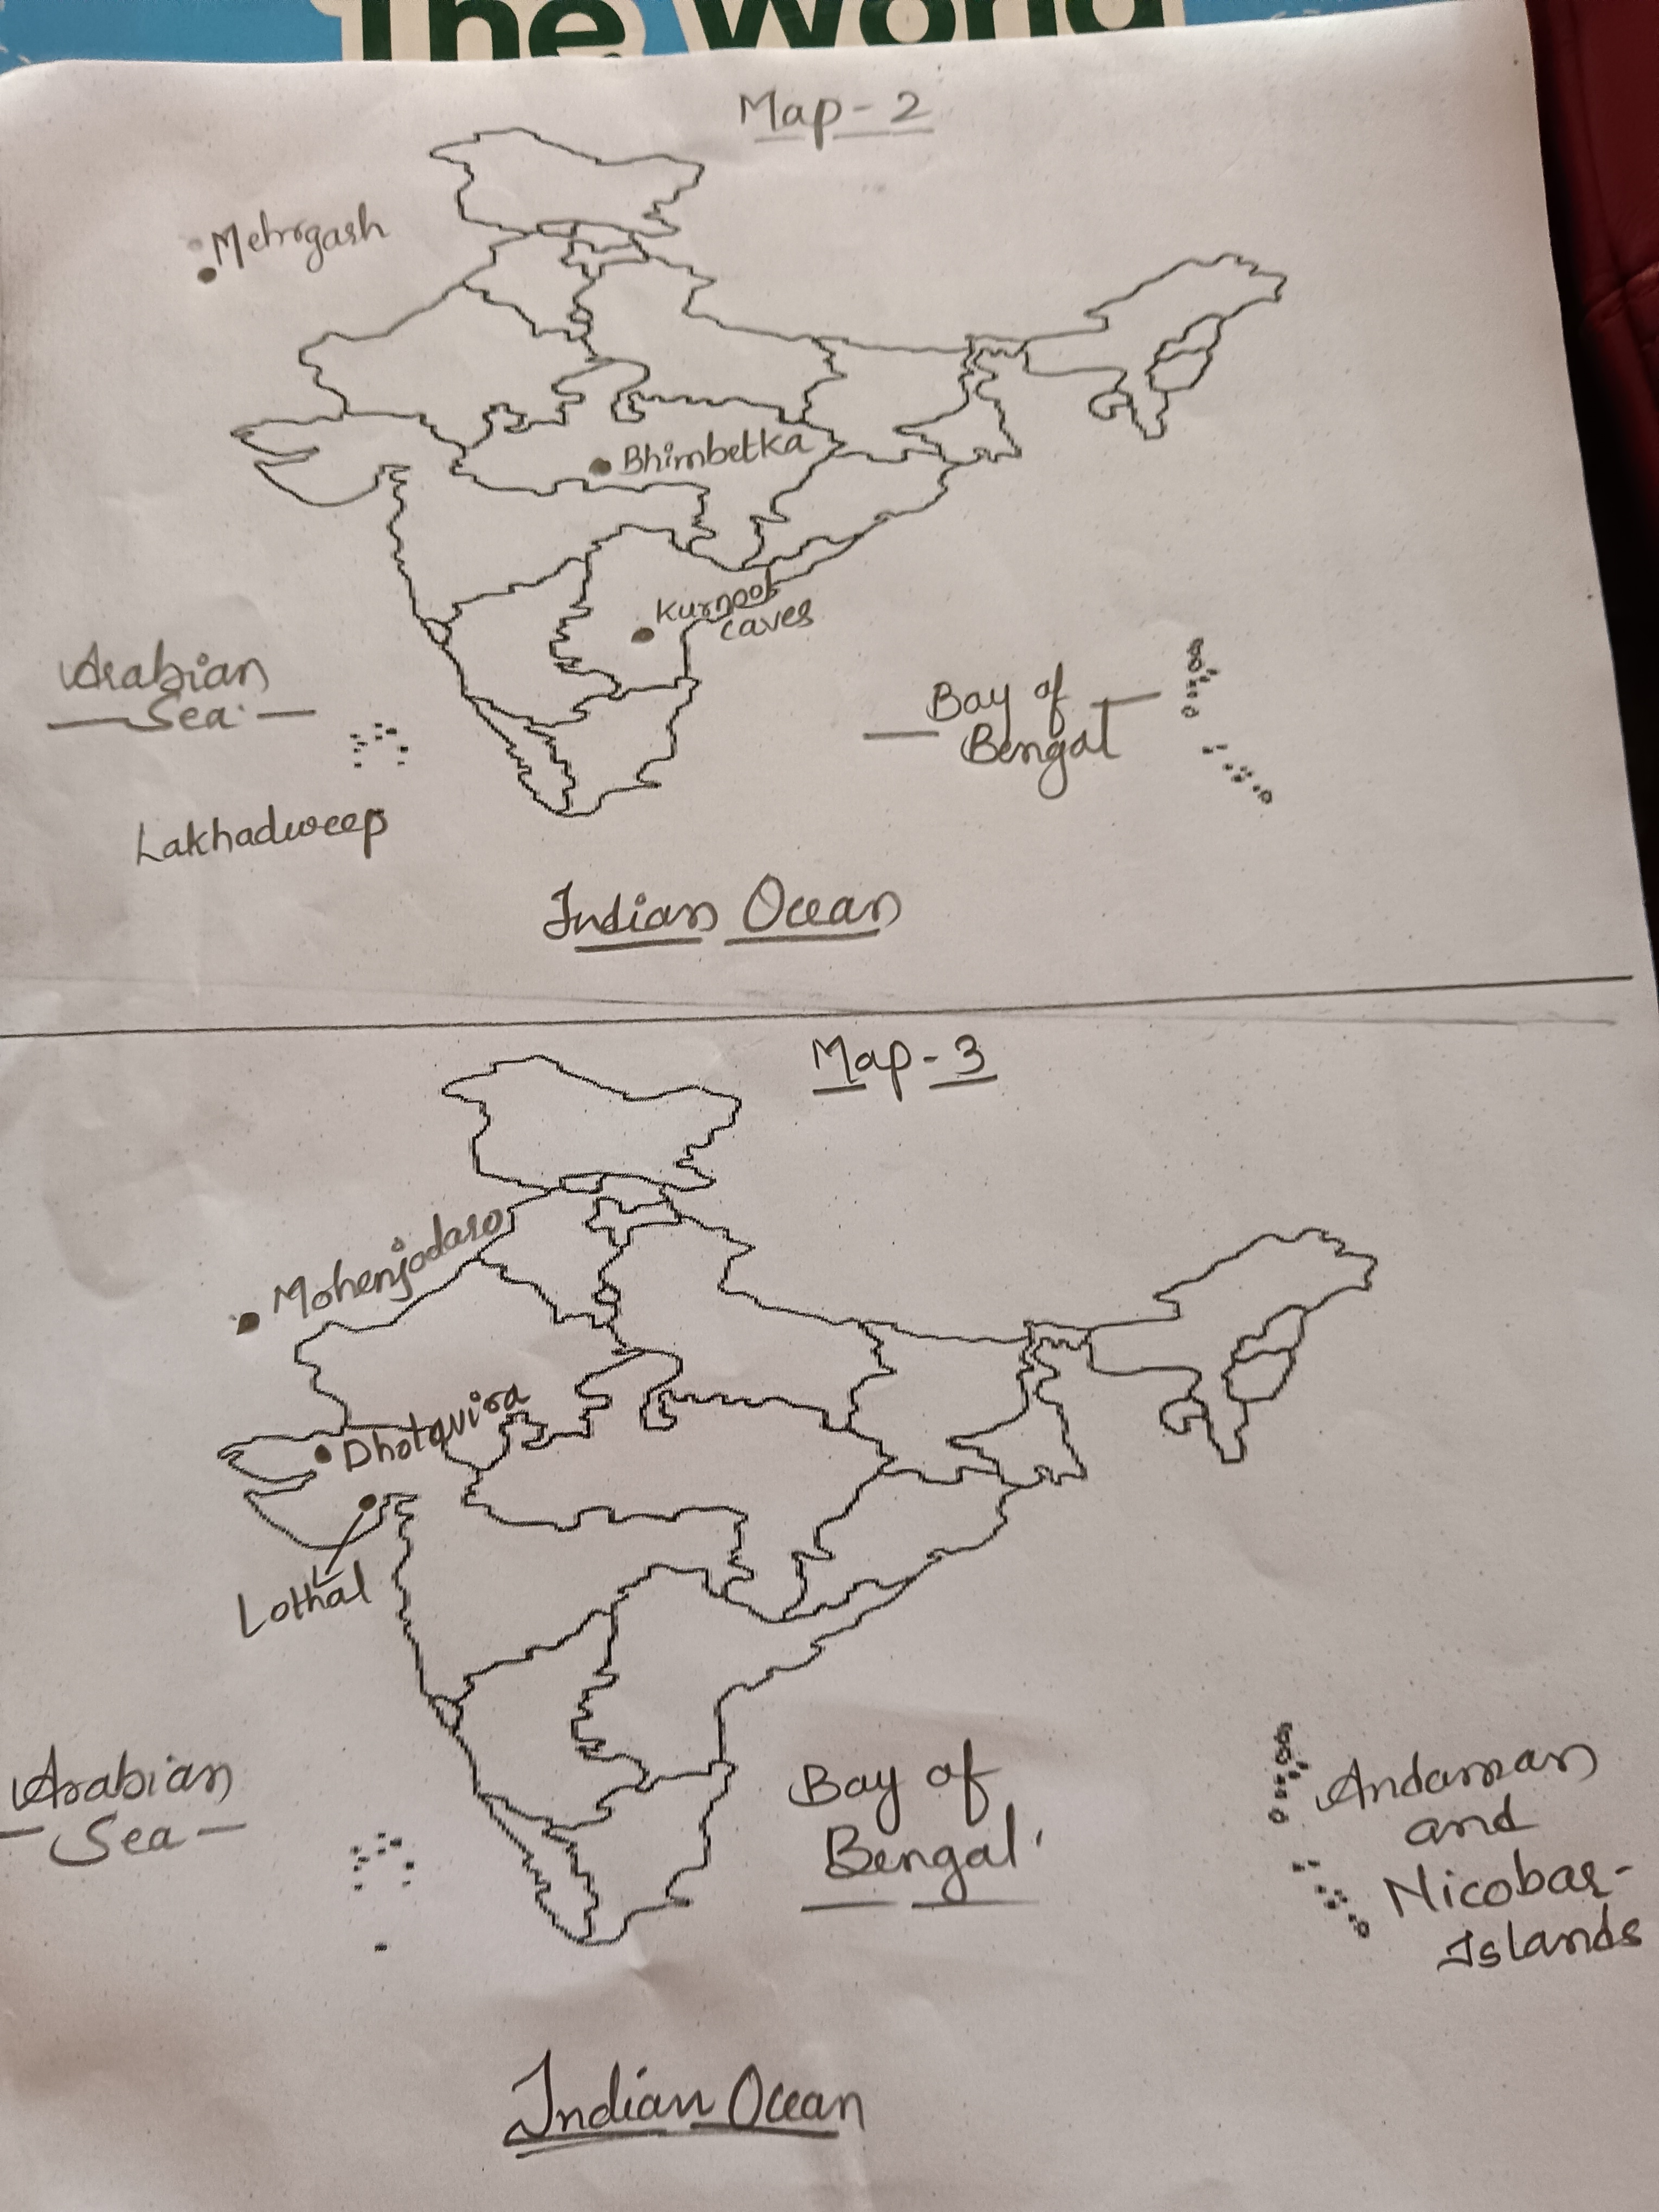 The World
Map-2
Mehrgash
Bhimbetka
Kurnool
caves
Arabian
Sea
Bay of
Bengal
Lakhadweep
Indian Ocean
Map-3
Mohenjodaro
Dholavira
Lothal
Arabian
Sea
Bay of
Bengal
Andaman
and
Nicobar-
Islands
Indian Ocean